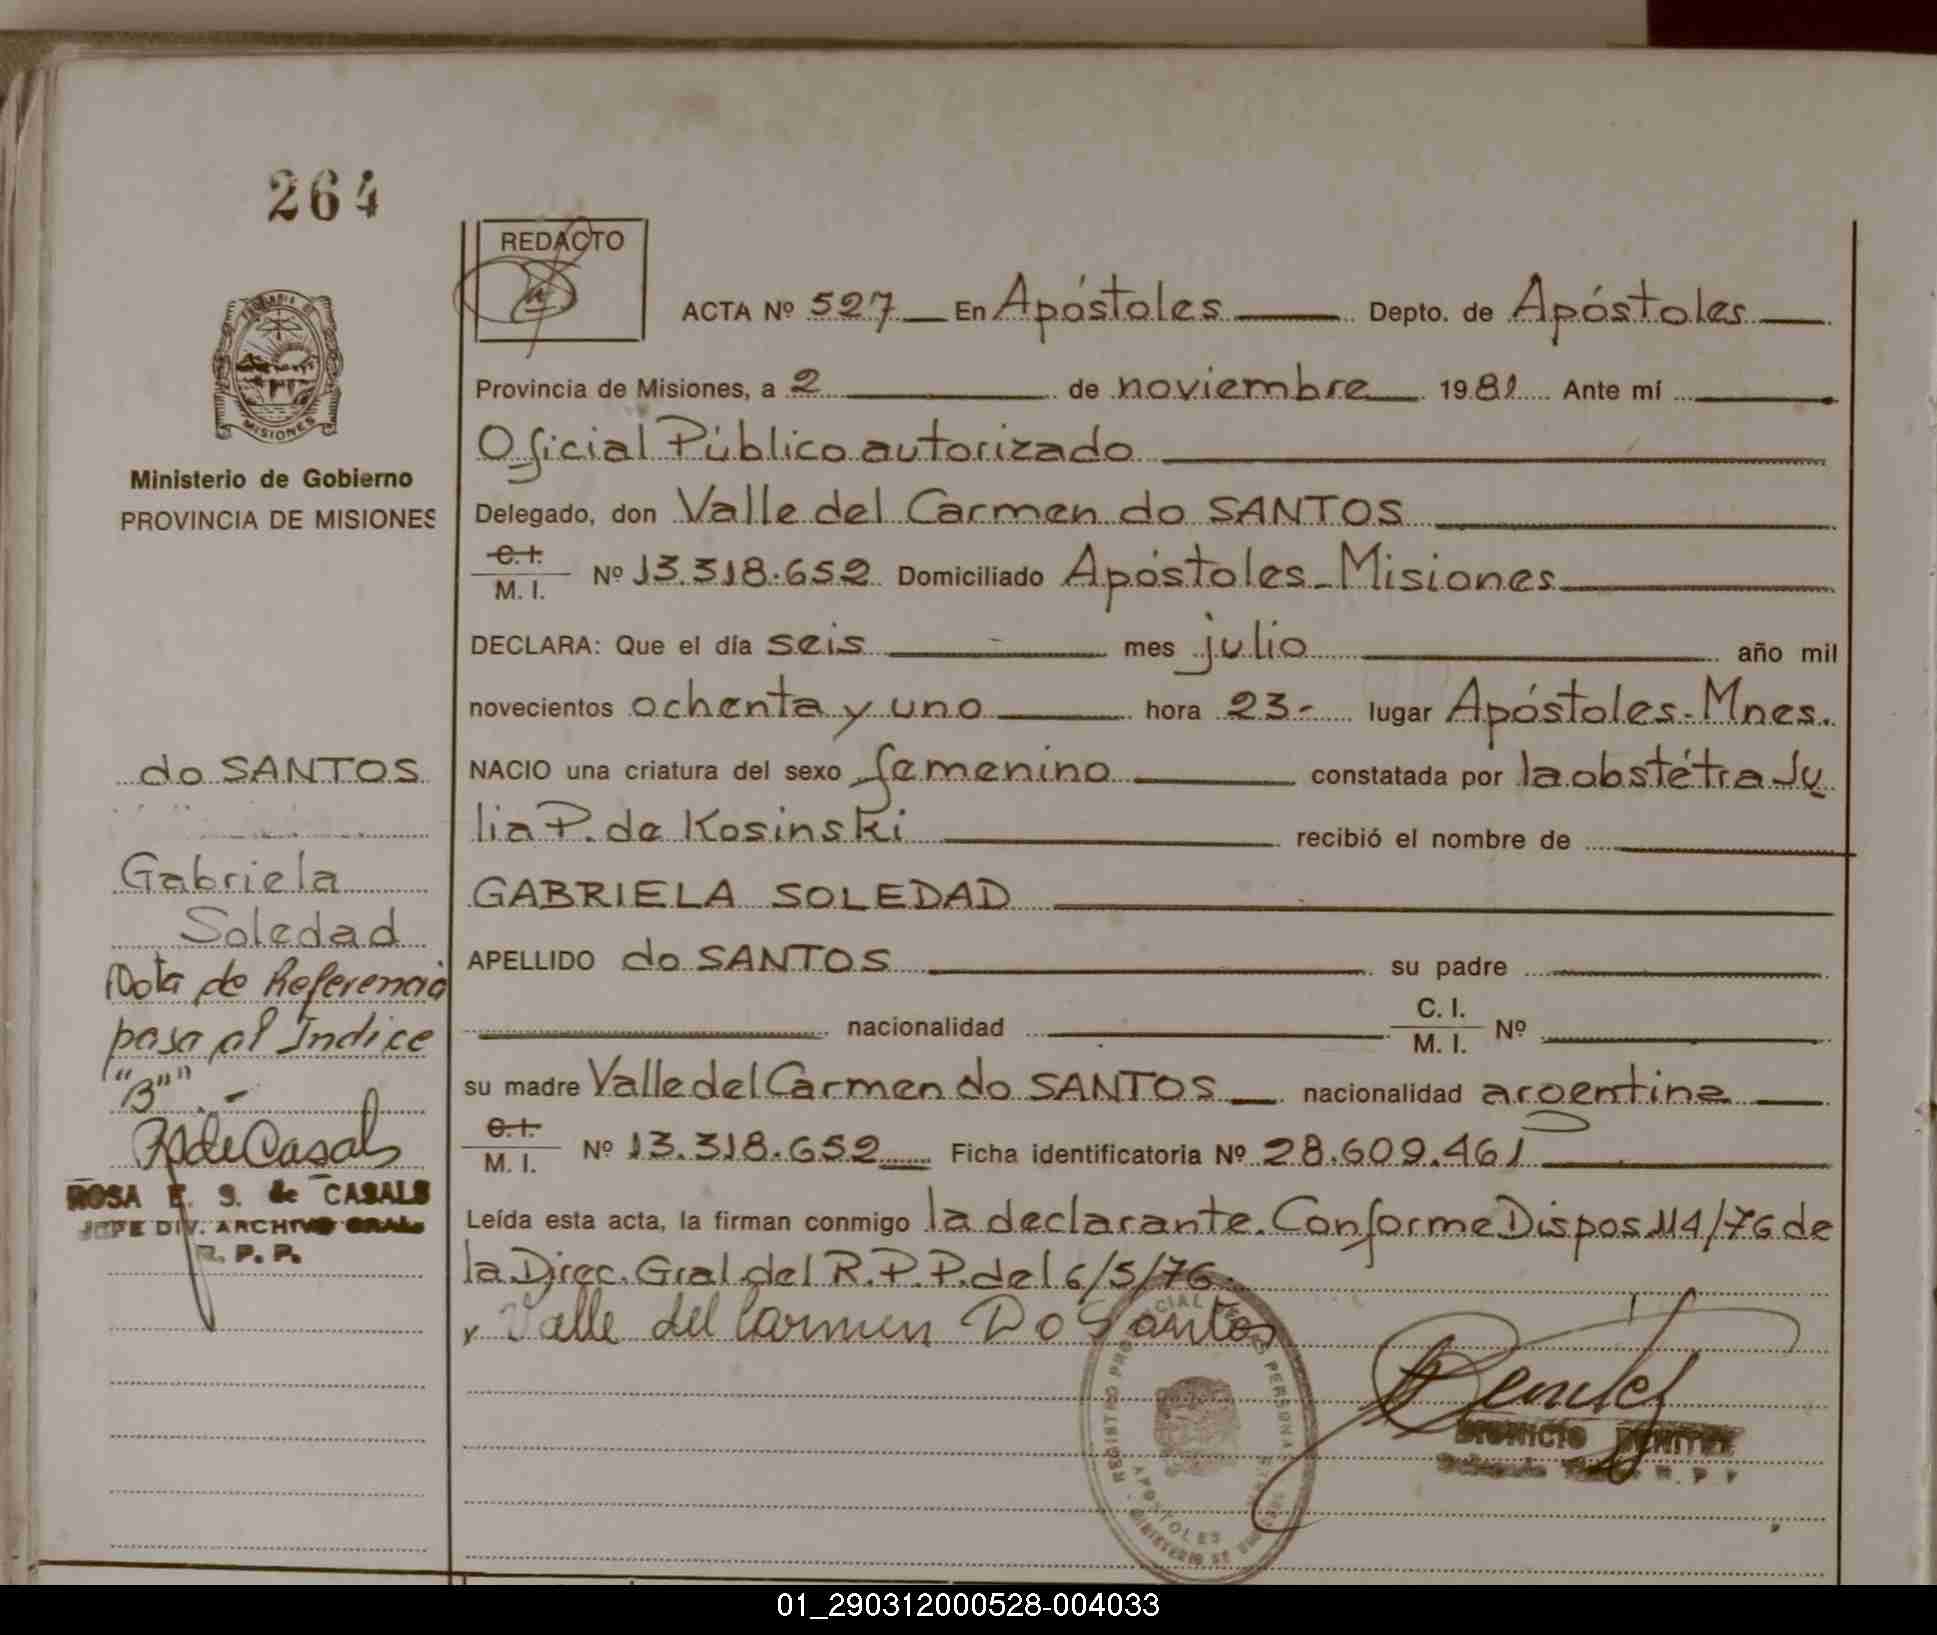 264
REDACTO
ACTA Nº 527 En Apóstoles Depto. de Apóstoles
Provincia de Misiones, a 2 de noviembre 1981 Ante mí
Oficial Público autorizado
MISIONES
Ministerio de Gobierno
PROVINCIA DE MISIONES
Delegado, don Valle del Carmen do SANTOS
C.I. M. I. Nº 13.318.652 Domiciliado Apóstoles-Misiones
DECLARA: Que el día seis mes julio año mil
novecientos ochenta y uno hora 23- lugar Apóstoles-Mnes.
NACIO una criatura del sexo femenino constatada por la obstétra Ju
lia P. de Kosinski recibió el nombre de
GABRIELA SOLEDAD
APELLIDO do SANTOS su padre
nacionalidad C. I. M. I. Nº
su madre Valle del Carmen do SANTOS nacionalidad argentina
C.I. M. I. Nº 13.318.652 Ficha identificatoria Nº 28.609.461
Leída esta acta, la firman conmigo la declarante. Conforme Dispos. 114/76 de
la Direc. Gral del R.P.P. del 6/5/76.
y Valle del Carmen Do Santos
do SANTOS
Gabriela
Soledad
Nota de Referencia
pasa al Indice
"B".-
RSdeCasals
ROSA E. S. de CASALS
JEFE DIV. ARCHIVO GRAL.
R. P. P.
APOSTOLES
Benitez
DIONICIO BENITEZ
R. P. P.
01_290312000528-004033